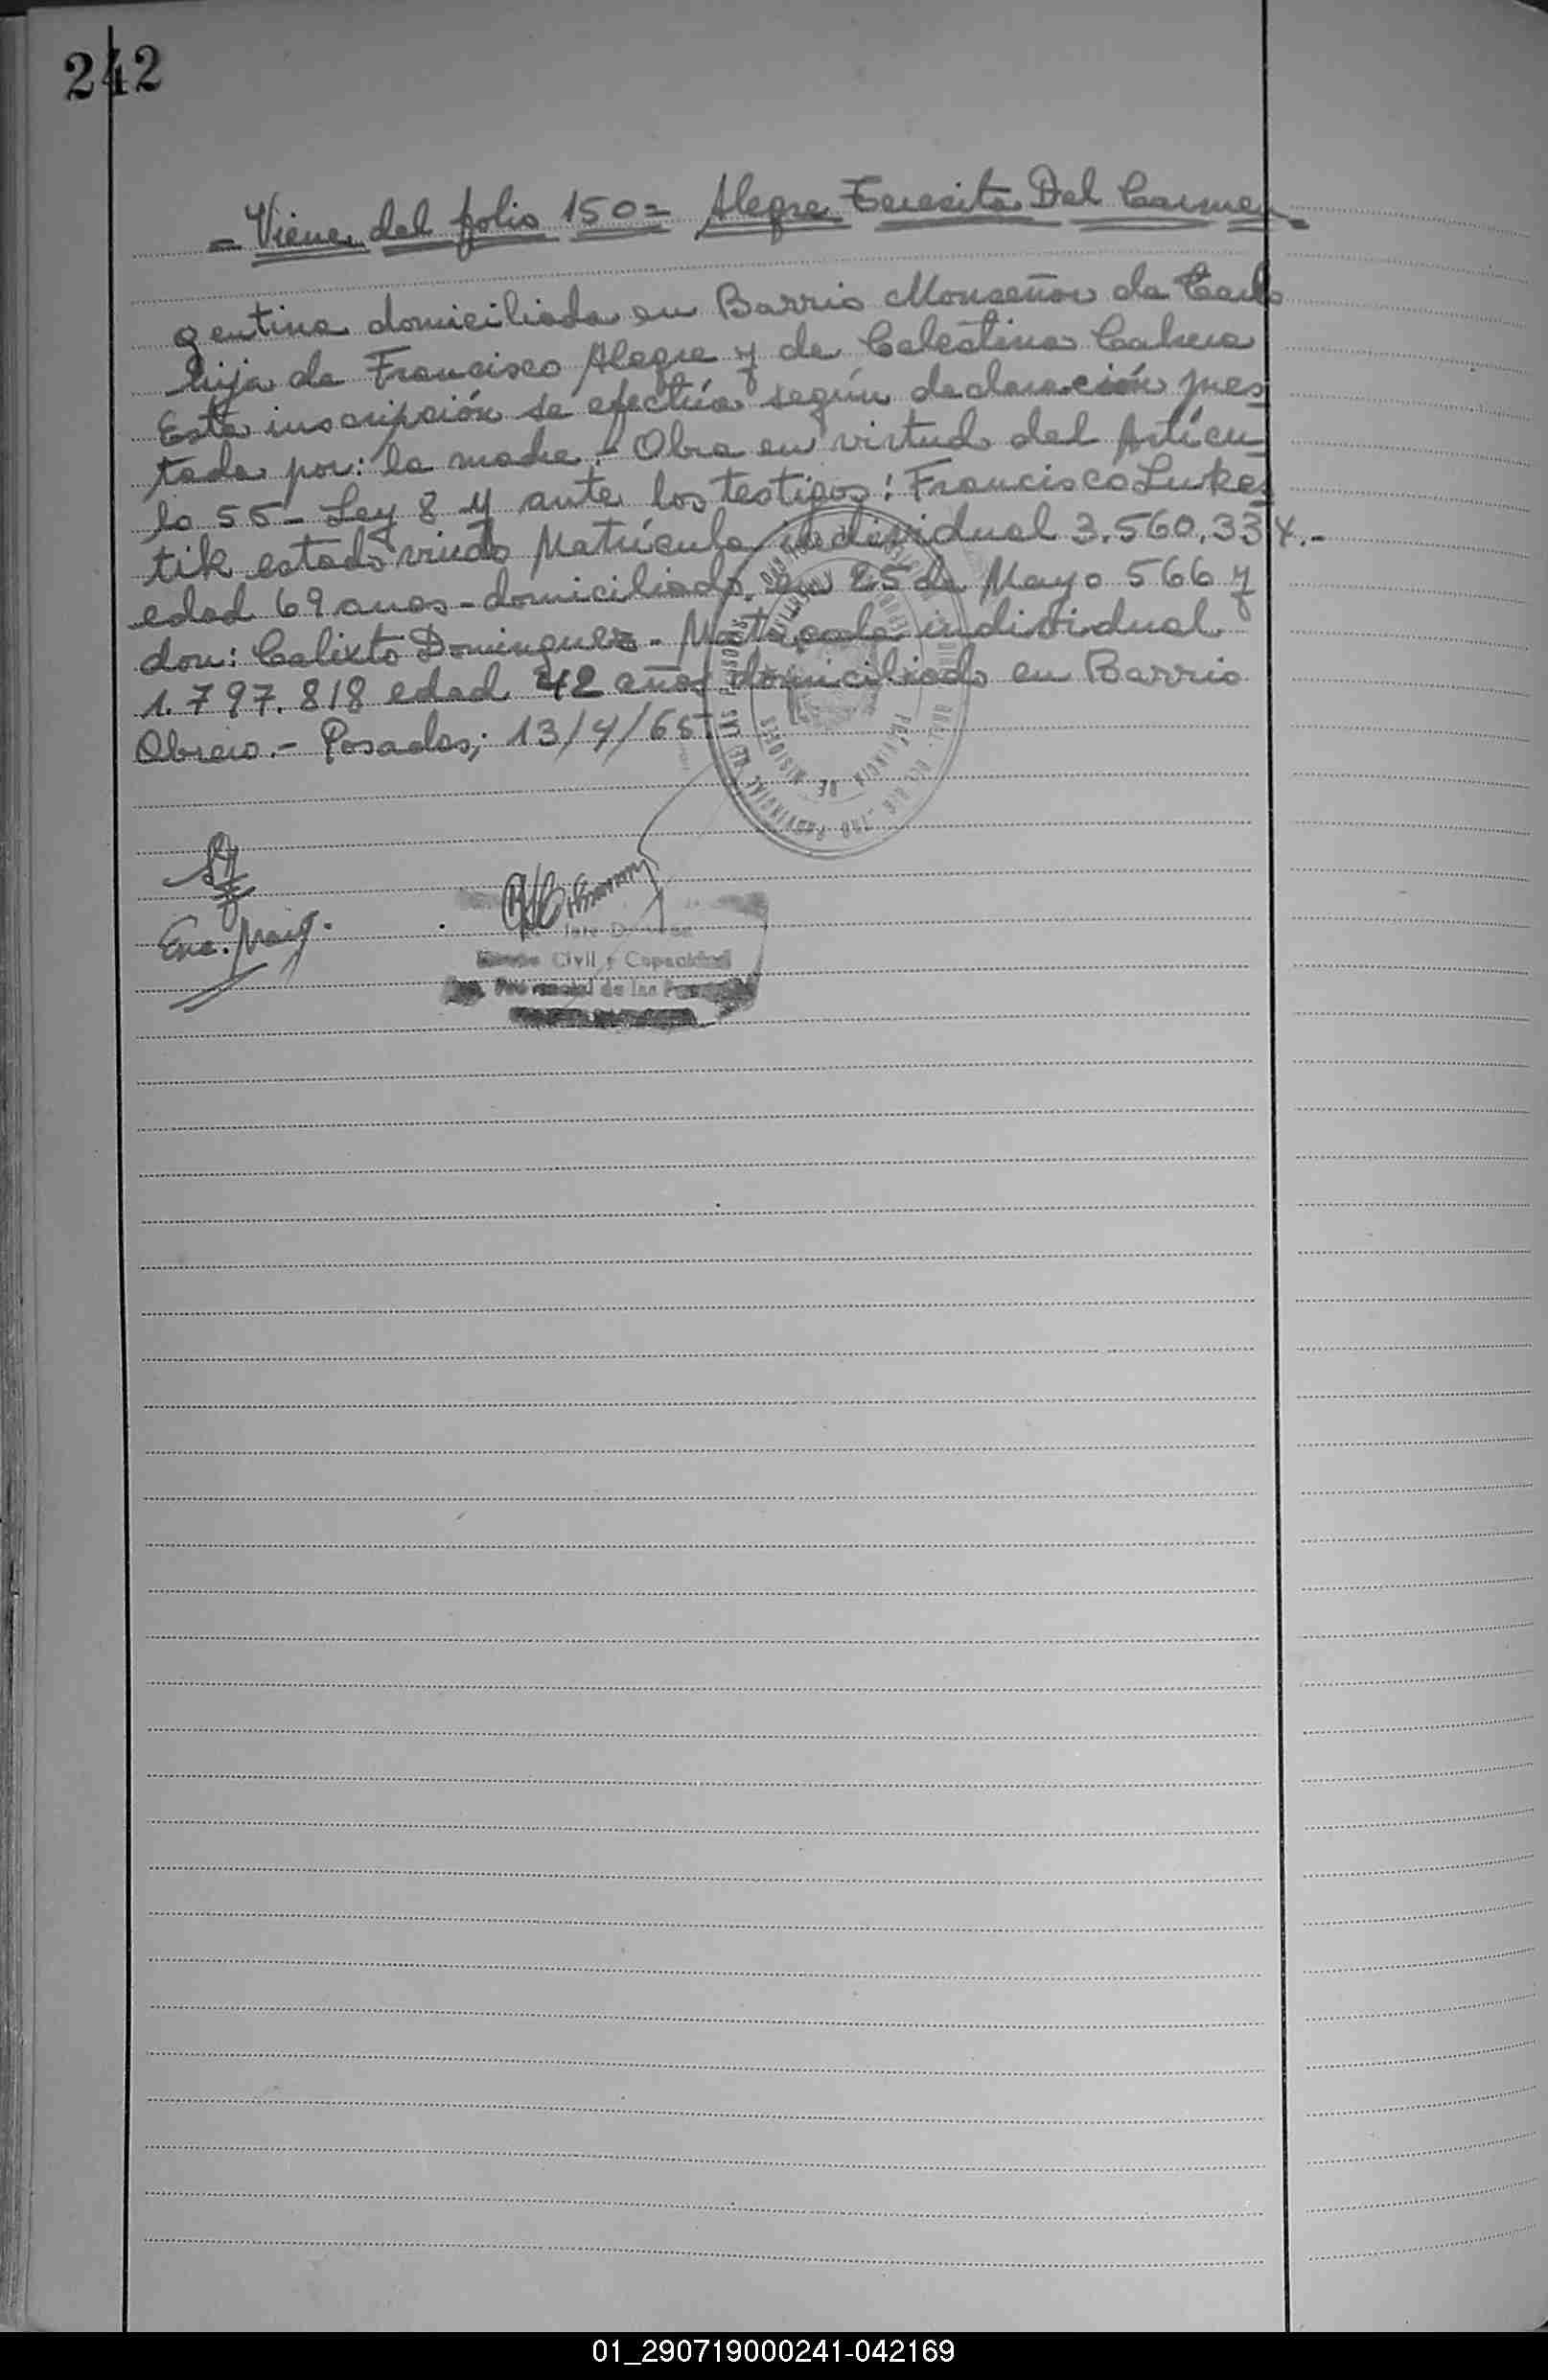 242
- Viene del folio 150 = Alegre Teresita Del Carmen -
gentina domiciliada en Barrio Monseñor de
hija de Francisco Alegre y de Celestina Cabrera
Esta inscripción se efectúa según declaración pres
tada por: la madre.- Obra en virtud del Artícu
lo 55 - Ley 8 y ante los testigos: Francisco Lukes
tik estado viudo Matrícula individual 3.560.334.-
edad 69 anos - domiciliado en 25 de Mayo 566 y
don: Calixto Dominguez - Matrícula individual
1.797.818 edad 42 años domiciliado en Barrio
Obrero.- Posadas; 13/4/65
PROVINCIA DE MISIONES
Enc.
Civil y Capacidad
de las
01_290719000241-042169